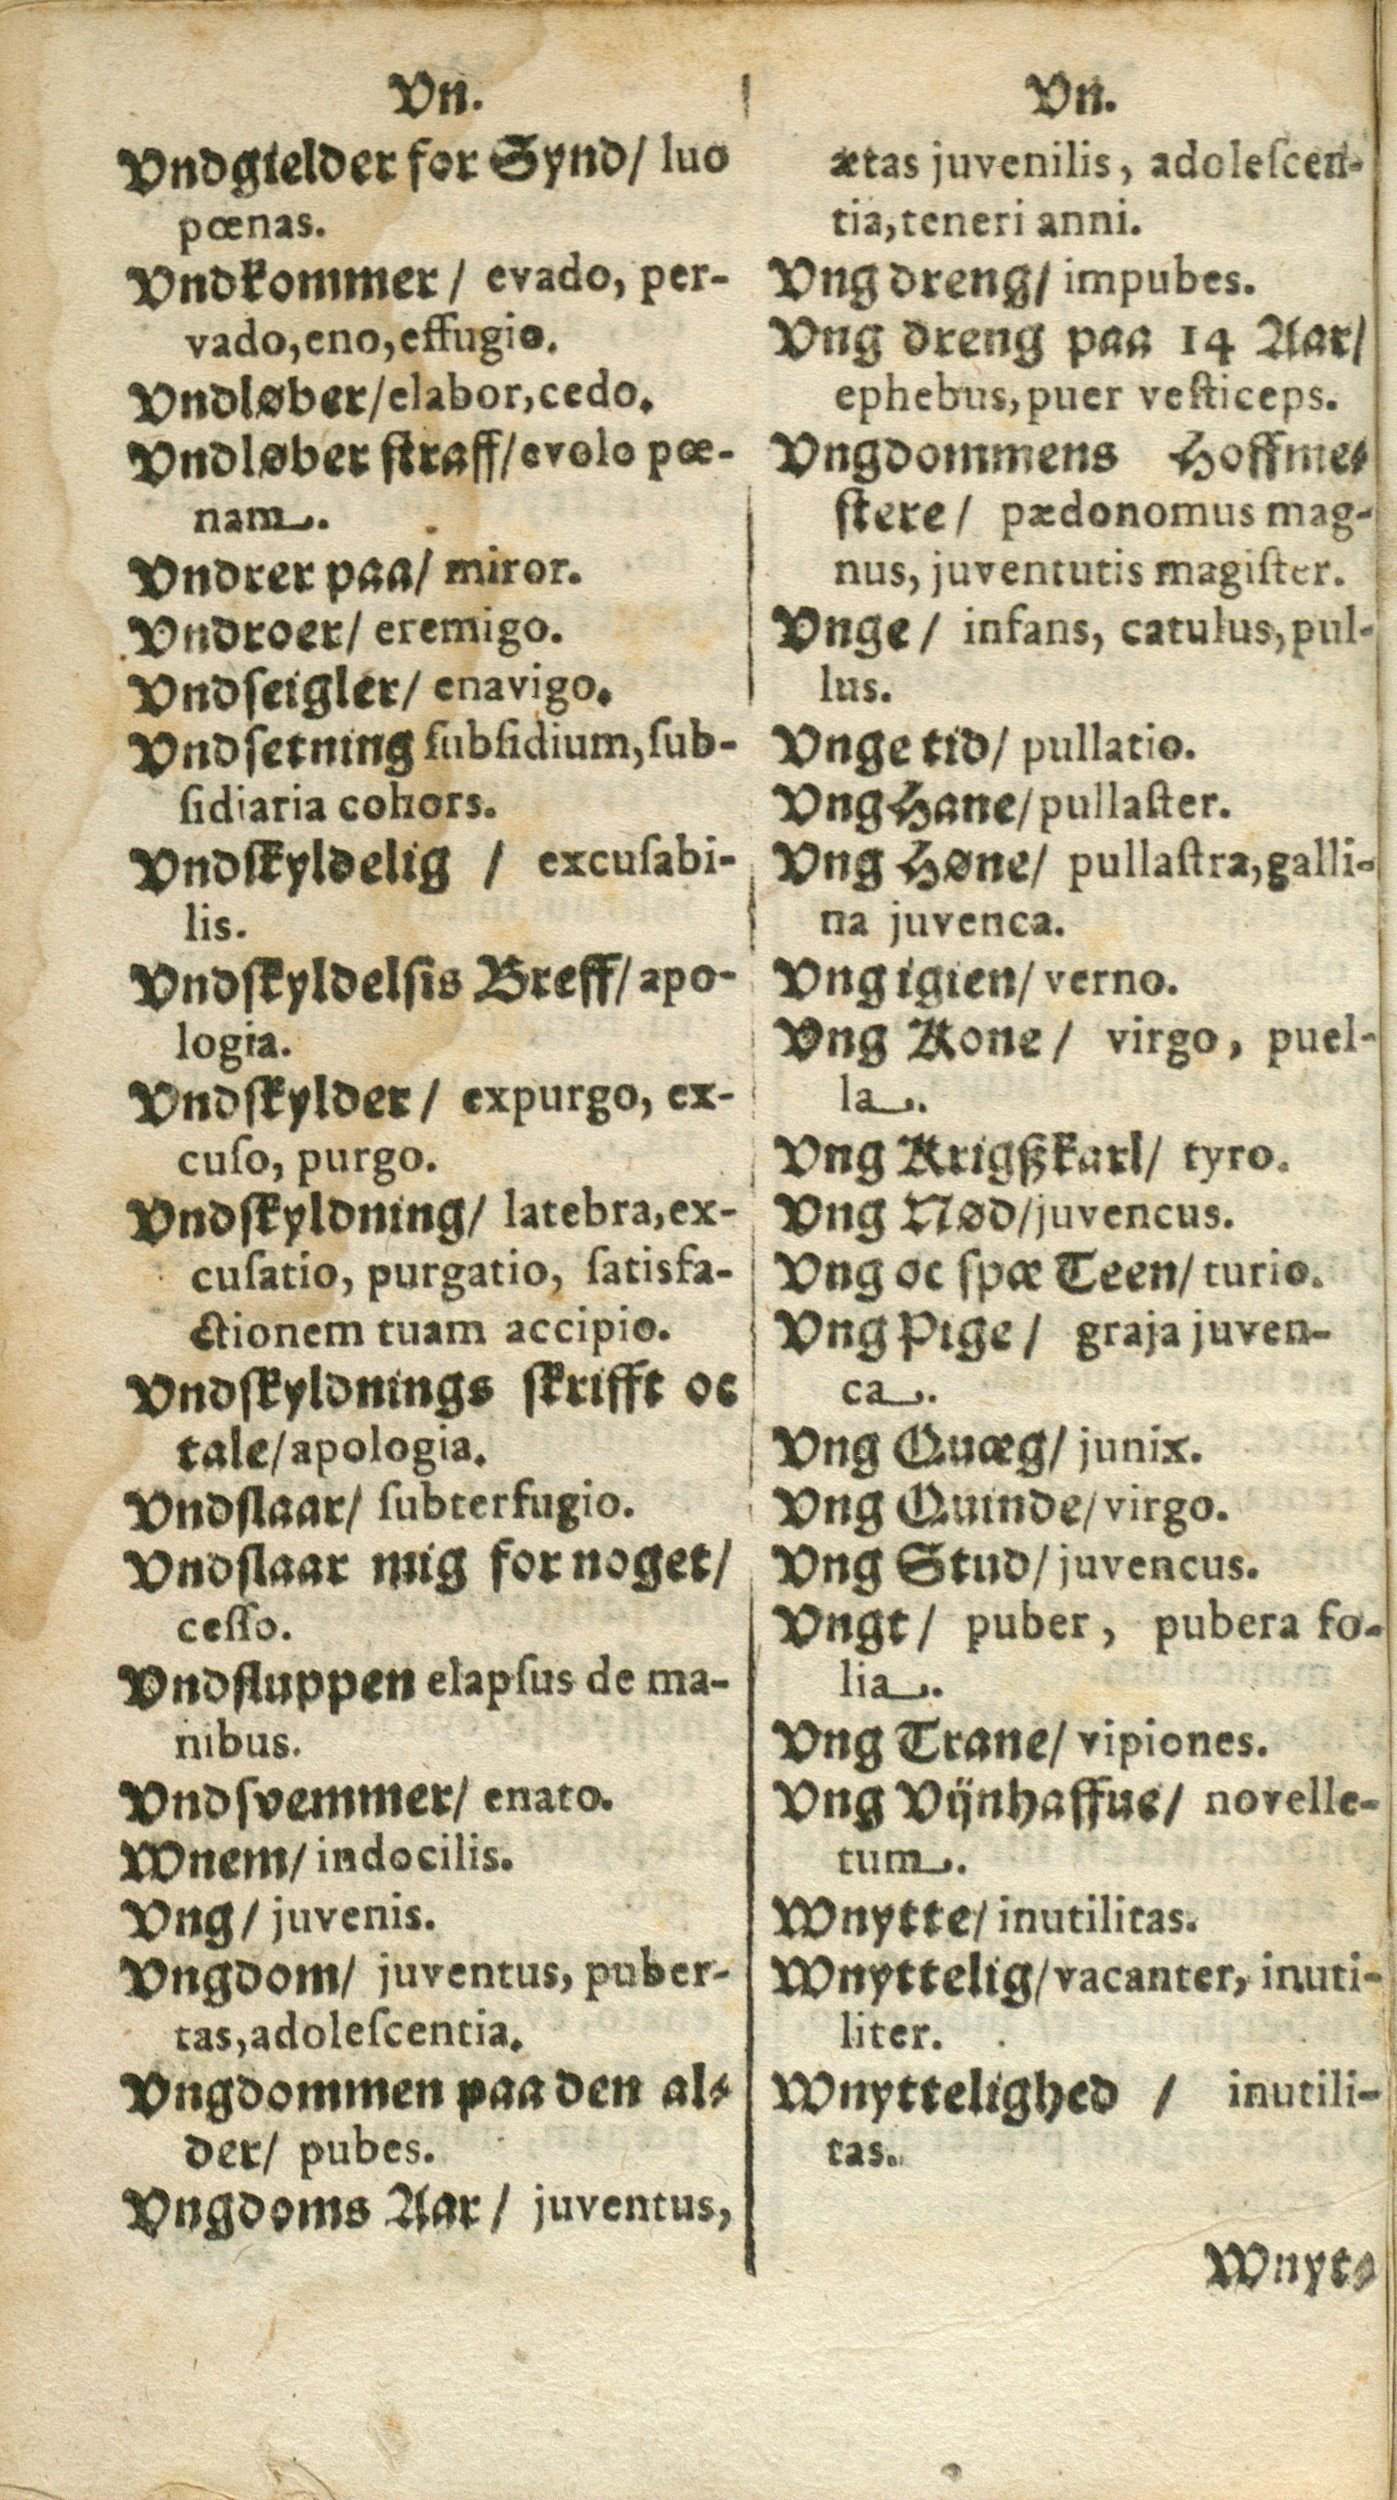 Vn.
Vndgielder for Synd/ luo
pœnas.
Vndkommer/ evado, per-
vado,eno,effugio.
Vndløber/elabor,cedo.
Vndløber straff/evolo pœ-
nam.
Vndrer paa/ miror.
Vndroer/ eremigo.
Vndſeigler/ enavigo.
Vndſetning ſubſidium,ſub-
ſidiaria cohors.
Vndſkyldelig / excuſabi-
lis.
Vndſkyldelſis Breff/apo-
logia.
Vndſkylder/ expurgo, ex-
cuſo, purgo.
Vndſkyldning/ latebra,ex-
cuſatio, purgatio, ſatisfa-
ctionem tuam accipio.
Vndſkyldnings ſkrifft oc
tale/apologia.
Vndſlaar/ ſubterfugio.
Vndſlaar mig for noget/
ceſſo.
Vndſluppen elapſus de ma-
nibus.
Vndſvemmer/ enato.
Wnem/ indocilis.
Vng/ juvenis.
Vngdom/ juventus, puber-
tas,adoleſcentia.
Vngdommen paa den al-
der/ pubes.
Vngdoms Aar/ juventus,
Vn.
ætas juvenilis, adoleſcen-
tia,teneri anni.
Vng dreng/ impubes.
Vng dreng paa 14 Aar/
ephebus,puer veſticeps.
Vngdommens Hoffme-
ſtere/ pædonomus mag-
nus, juventutis magiſter.
Vnge/ infans, catulus,pul-
lus.
Vnge tid/ pullatio.
Vng Hane/pullaſter.
Vng Høne/ pullaſtra,galli-
na juvenca.
Vng igien/ verno.
Vng Kone/ virgo, puel-
la.
Vng Krigßkarl/ tyro.
Vng Nød/juvencus.
Vng oc ſpæ Teen/ turio.
Vng Pige/ graja juven-
ca.
Vng Quæg/ junix.
Vng Quinde/virgo.
Vng Stud/ juvencus.
Vngt/ puber, pubera fo-
lia.
Vng Trane/ vipiones.
Vng Vijnhaffue/ novelle-
tum.
Wnytte/ inutilitas.
Wnyttelig/vacanter, inuti-
liter.
Wnyttelighed / inutili-
tas.
Wnyt-